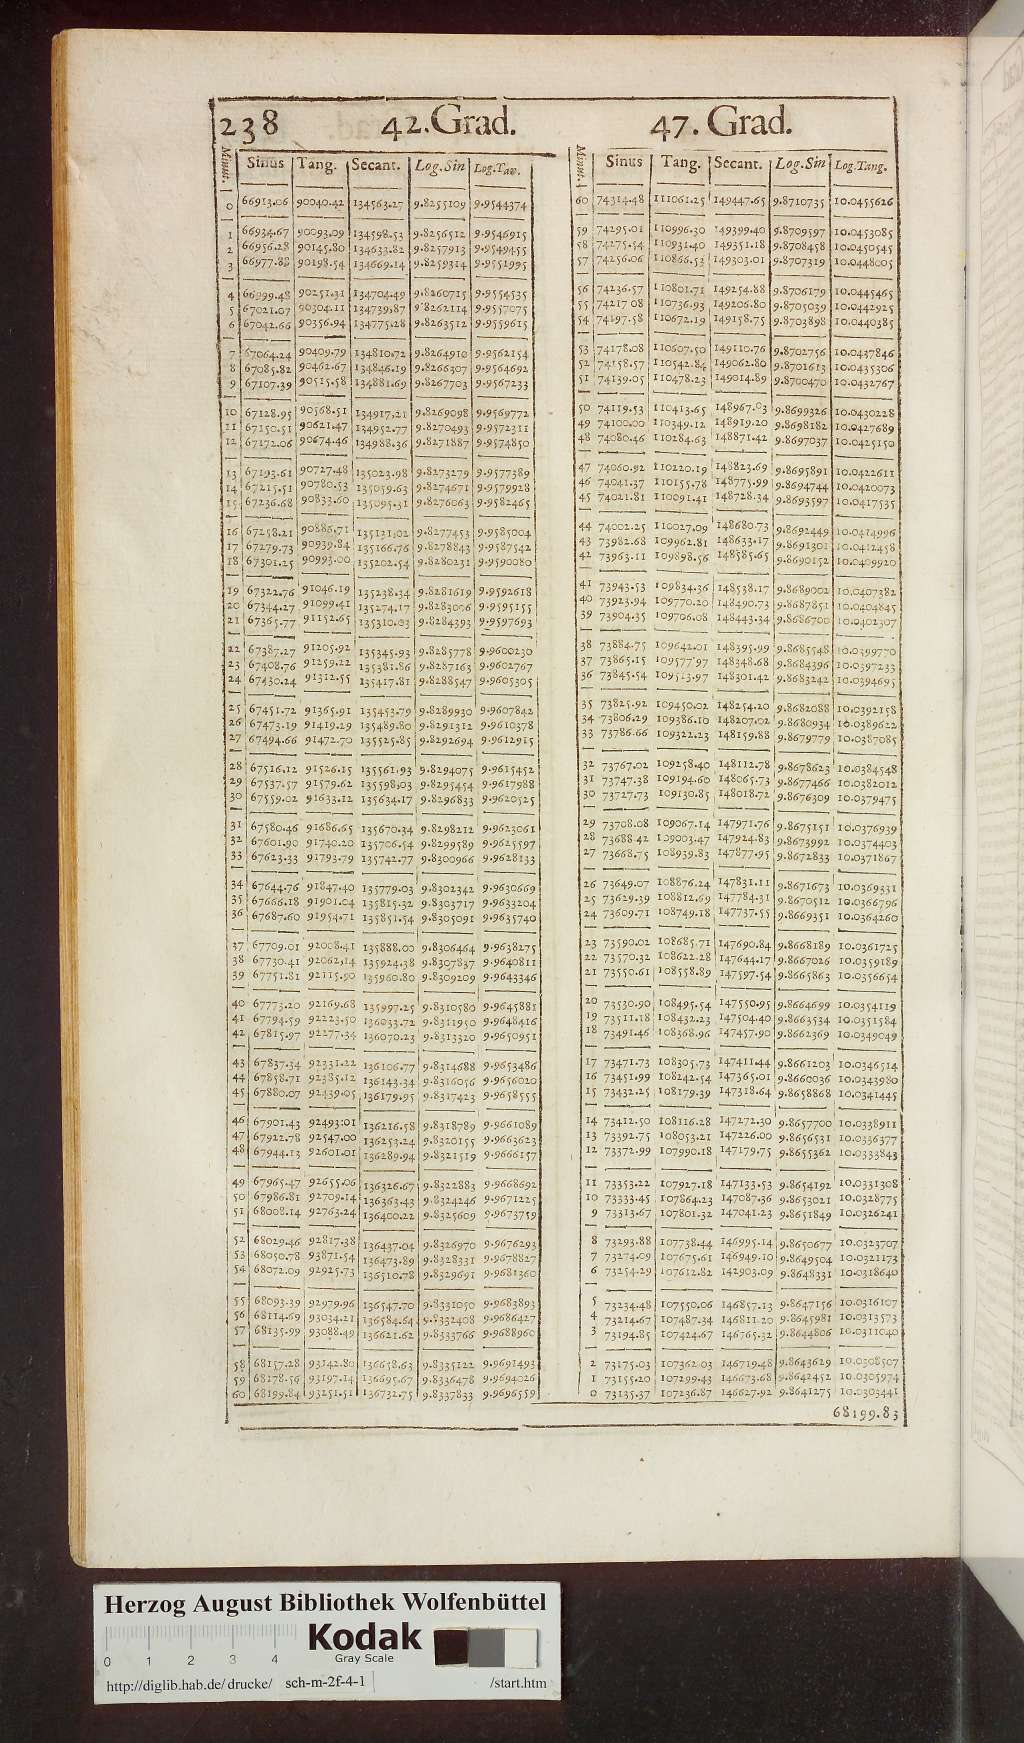 238 42. Grad. 47. Grad.
Minut. Sinus Tang. Secant. Log.Sin Log.Tan. Minut. Sinus Tang. Secant. Log.Sin Log.Tang.
0 66913.06 90040.42 134563.27 9.8255109 9.9544374 60 74314.48 111061.25 149447.65 9.8710735 10.0455626
1 66934.67 90093.09 134598.53 9.8256512 9.9546915 59 74295.01 110996.30 149399.40 9.8709597 10.0453085
2 66956.28 90145.80 134633.82 9.8257913 9.9549455 58 74275.54 110931.40 149351.18 9.8708458 10.0450545
3 66977.88 90198.54 134669.14 9.8259314 9.9551995 57 74256.06 110866.53 149303.01 9.8707319 10.0448005
4 66999.48 90251.31 134704.49 9.8260715 9.9554535 56 74236.57 110801.71 149254.88 9.8706179 10.0445465
5 67021.07 90304.11 134739.87 9.8262114 9.9557075 55 74217 08 110736.93 149206.80 9.8705039 10.0442925
6 67042.66 90356.94 134775.28 9.8263512 9.9559615 54 74197.58 110672.19 149158.75 9.8703898 10.0440385
7 67064.24 90409.79 134810.72 9.8264910 9.9562154 53 74178.08 110607.50 149110.76 9.8702756 10.0437846
8 67085.82 90462.67 134846.19 9.8266307 9.9564692 52 74158.57 110542.84 149062.80 9.8701613 10.0435306
9 67107.39 90515.58 134881.69 9.8267703 9.9567233 51 74139.05 110478.23 149014.89 9.8700470 10.0432767
10 67128.95 90568.51 134917.21 9.8269098 9.9569772 50 74119.53 110413.65 148967.03 9.8699326 10.0430228
11 67150.51 90621.47 134952.77 9.8270493 9.9572311 49 74100.00 110349.12 148919.20 9.8698182 10.0427689
12 67172.06 90674.46 134988.36 9.8271887 9.9574850 48 74080.46 110284.63 148871.42 9.8697037 10.0425150
13 67193.61 90727.48 135023.98 9.8273279 9.9577389 47 74060.92 110220.19 148823.69 9.8695891 10.0422611
14 67215.51 90780.53 135059.63 9.8274671 9.9579928 46 74041.37 110155.78 148775.99 9.8694744 10.0420073
15 67236.68 90833.60 135095.31 9.8276063 9.9582465 45 74021.81 110091.41 148728.34 9.8693597 10.0417535
16 67258.21 90886.71 135131.02 9.8277453 9.9585004 44 74002.25 110027.09 148680.73 9.8692449 10.0414996
17 67279.73 90939.84 135166.76 9.8278843 9.9587542 43 73982.68 109962.81 148633.17 9.8691301 10.0412458
18 67301.25 90993.00 135202.54 9.8280231 9.9590080 42 73963.11 109898.56 148585.65 9.8690152 10.0409920
19 67322.76 91046.19 135238.34 9.8281619 9.9592618 41 73943.53 109834.36 148538.17 9.8689002 10.0407382
20 67344.27 91099.41 135274.17 9.8283006 9.9595155 40 73923.94 109770.20 148490.73 9.8687851 10.0404845
21 67365.77 91152.65 135310.03 9.8284393 9.9597693 39 73904.35 109706.08 148443.34 9.8686700 10.0402307
22 67387.27 91205.92 135345.93 9.8285778 9.9600230 38 73884.75 109642.01 148395.99 9.8685548 10.0399770
23 67408.76 91259.22 135381.86 9.8287163 9.9602767 37 73865.15 109577.97 148348.68 9.8684396 10.0397233
24 67430.24 91312.55 135417.81 9.8288547 9.9605305 36 73845.54 109513.97 148301.42 9.8683242 10.0394695
25 67451.72 91365.91 135453.79 9.8289930 9.9607842 35 73825.92 109450.02 148254.20 9.8682088 10.0392158
26 67473.19 91419.29 135489.80 9.8291312 9.9610378 34 73806.29 109386.10 148207.02 9.8680934 10.0389622
27 67494.66 91472.70 135525.85 9.8292694 9.9612915 33 73786.66 109322.23 148159.88 9.8679779 10.0387085
28 67516.12 91526.15 135561.93 9.8294075 9.9615452 32 73767.02 109258.40 148112.78 9.8678623 10.0384548
29 67537.57 91579.62 135598.03 9.8295454 9.9617988 31 73747.38 109194.60 148065.73 9.8677466 10.0382012
30 67559.02 91633.12 135634.17 9.8296833 9.9620525 30 73727.73 109130.85 148018.72 9.8676309 10.0379475
31 67580.46 91686.65 135670.34 9.8298212 9.9623061 29 73708.08 109067.14 147971.76 9.8675151 10.0376939
32 67601.90 91740.20 135706.54 9.8299589 9.9625597 28 73688.42 109003.47 147924.83 9.8673992 10.0374403
33 67623.33 91793.79 135742.77 9.8300966 9.9628133 27 73668.75 108939.83 147877.95 9.8672833 10.0371867
34 67644.76 91847.40 135779.03 9.8302342 9.9630669 26 73649.07 108876.24 147831.11 9.8671673 10.0369331
35 67666.18 91901.04 135815.32 9.8303717 9.9633204 25 73629.39 108812.69 147784.31 9.8670512 10.0366796
36 67687.60 91954.71 135851.54 9.8305091 9.9635740 24 73609.71 108749.18 147737.55 9.8669351 10.0364260
37 67709.01 92008.41 135888.00 9.8306464 9.9638275 23 73590.02 108685.71 147690.84 9.8668189 10.0361725
38 67730.41 92062.14 135924.38 9.8307837 9.9640811 22 73570.32 108622.28 147644.17 9.8667026 10.0359189
39 67751.81 92115.90 135960.80 9.8309209 9.9643346 21 73550.61 108558.89 147597.54 9.8665863 10.0356654
40 67773.20 92169.68 135997.25 9.8310580 9.9645881 20 73530.90 108495.54 147550.95 9.8664699 10.0354119
41 67794.59 92223.50 136033.72 9.8311950 9.9648416 19 73511.18 108432.23 147504.40 9.8663534 10.0351584
42 67815.97 92277.34 136070.23 9.8313320 9.9650951 18 73491.46 108368.96 147457.90 9.8662369 10.0349049
43 67837.34 92331.22 136106.77 9.8314688 9.9653486 17 73471.73 108305.73 147411.44 9.8661203 10.0346514
44 67858.71 92385.12 136143.34 9.8316056 9.9656020 16 73451.99 108242.54 147365.01 9.8660036 10.0343980
45 67880.07 92439.05 136179.95 9.8317423 9.9658555 15 73432.25 108179.39 147318.64 9.8658868 10.0341445
46 67901.43 92493.01 136216.58 9.8318789 9.9661089 14 73412.50 108116.28 147272.30 9.8657700 10.0338911
47 67922.78 92547.00 136253.24 9.8320155 9.9663623 13 73392.75 108053.21 147226.00 9.8656531 10.0336377
48 67944.13 92601.01 136289.94 9.8321519 9.9666157 12 73372.99 107990.18 147179.75 9.8655362 10.0333843
49 67965.47 92655.06 136326.67 9.8322883 9.9668692 11 73353.22 107927.18 147133.53 9.8654192 10.0331308
50 67986.81 92709.14 136363.43 9.8324246 9.9671225 10 73333.45 107864.23 147087.36 9.8653021 10.0328775
51 68008.14 92763.24 136400.22 9.8325609 9.9673759 9 73313.67 107801.32 147041.23 9.8651849 10.0326241
52 68029.46 92817.38 136437.04 9.8326970 9.9676293 8 73293.88 107738.44 146995.14 9.8650677 10.0323707
53 68050.78 93871.54 136473.89 9.8328331 9.9678827 7 73274.09 107675.61 146949.10 9.8649504 10.0321173
54 68072.09 92925.73 136510.78 9.8329691 9.9681360 6 73254.29 107612.82 142903.09 9.8648331 10.0318640
55 68093.39 92979.96 136547.70 9.8331050 9.9683893 5 73234.48 107550.06 146857.13 9.8647156 10.0316107
56 68114.69 93034.21 136584.64 9.8332408 9.9686427 4 73214.67 107487.34 146811.20 9.8645981 10.0313573
57 68135.99 93088.49 136621.62 9.8333766 9.9688960 3 73194.85 107424.67 146765.32 9.8644806 10.0311040
58 68157.28 93142.80 136658.63 9.8335122 9.9691493 2 73175.03 107362.03 146719.48 9.8643629 10.0308507
59 68178.56 93197.14 136695.67 9.8336478 9.9694026 1 73155.20 107299.43 146673.68 9.8642452 10.0305974
60 68199.84 93251.51 136732.75 9.8337833 9.9696559 0 73135.37 107236.87 146627.92 9.8641275 10.0303441
68199.83
Herzog August Bibliothek Wolfenbüttel
Kodak
Gray Scale
0 1 2 3 4
http://diglib.hab.de/ drucke/ sch-m-2f-4-1 /start.htm